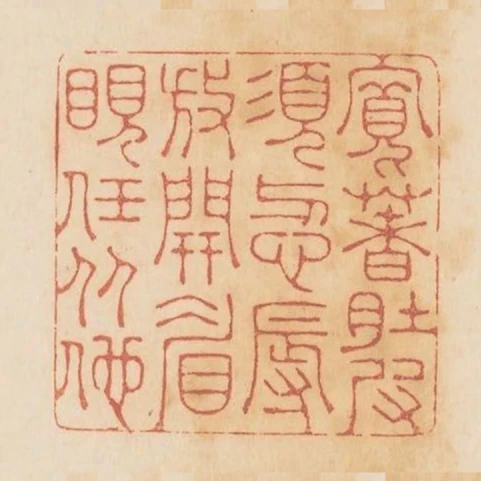 寬著肚皮
須忍辱
放開眉
眼任从他